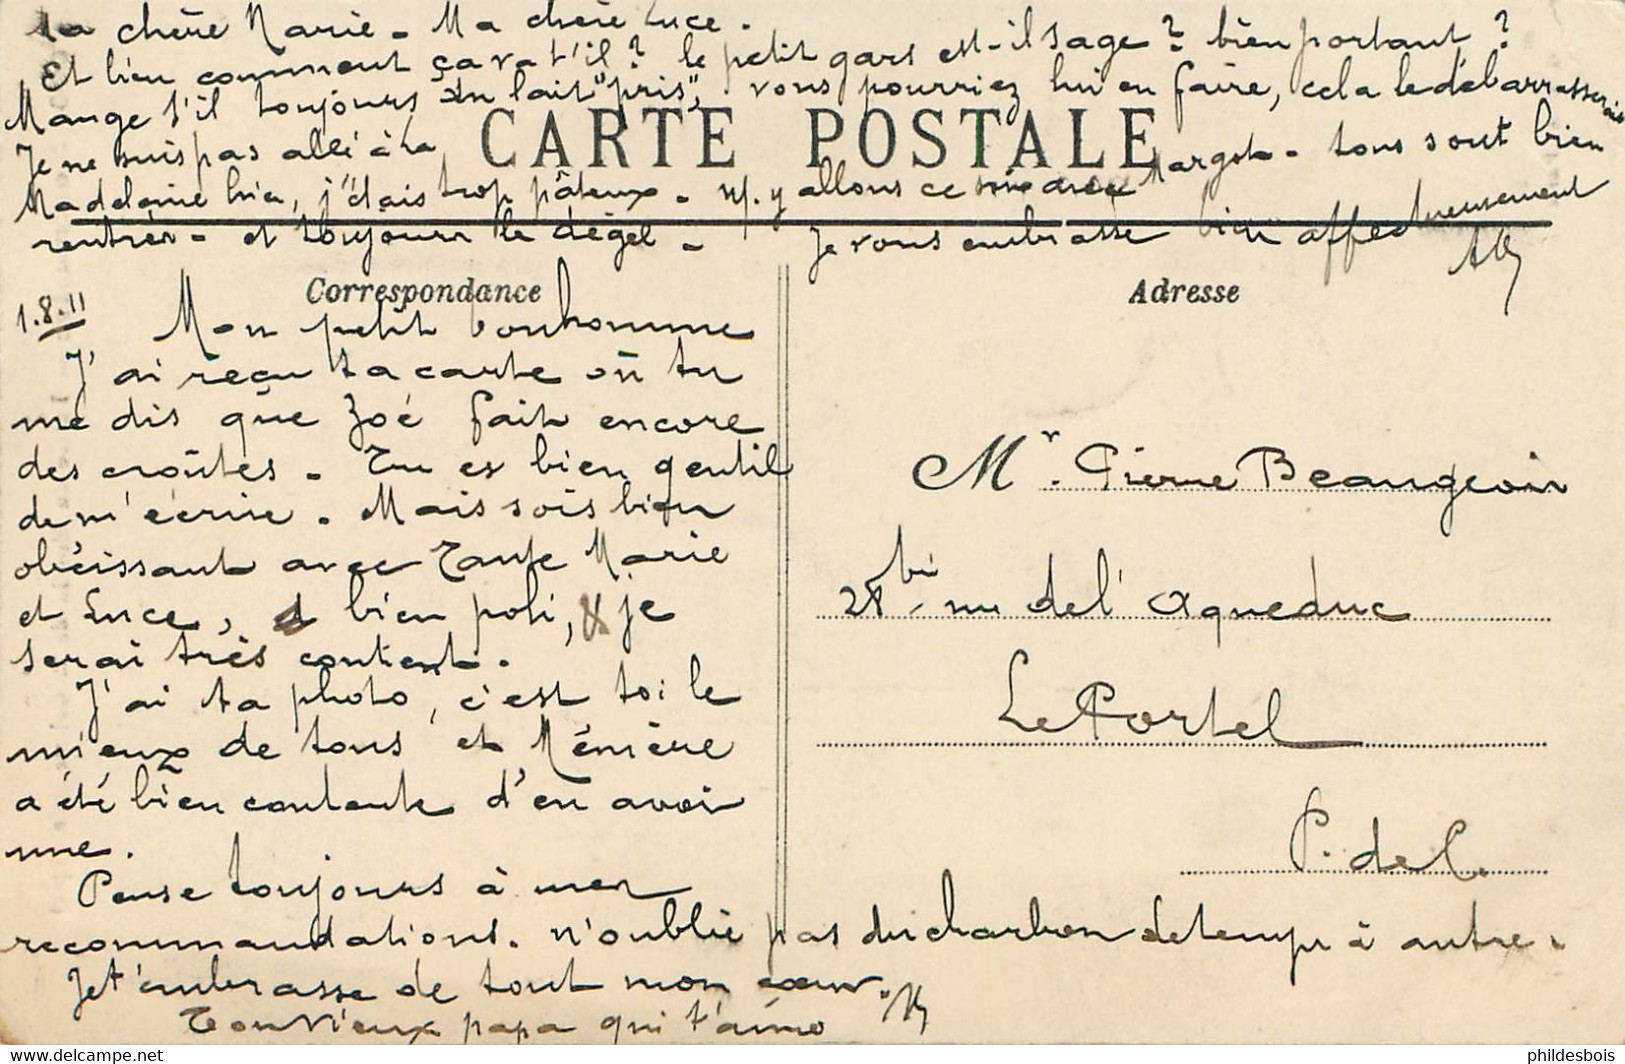 Ma chère Marie - Ma chère Luce.
Et bien comment ça va t'il? le petit gars est-il sage? bien portant?
Mange t'il toujours du lait "pris", vous pourriez lui en faire, cela le débarrasserait
Je ne suis pas allé à la
CARTE POSTALE
Margot - tous sont bien
Madeleine hier, j'étais trop pâteux - y allons ce soir avec
rentrés - et toujours le dégel - Je vous embrasse bien affectueusement
Correspondance
Adresse
1.8.11
Mon petit bonhomme
J'ai reçu ta carte où tu
me dis que Zoé fait encore
des croûtes - Tu es bien gentil
de m'écrire. Mais sois bien
obéissant avec Tante Marie
et Luce, bien poli, je
serai très content.
J'ai ta photo, c'est toi le
mieux de tous et Mémère
a été bien contente d'en avoir
une.
Pense toujours à mes
recommandations. n'oublie pas du charbon de temps à autre.
Je t'embrasse de tout mon cœur.
Ton Vieux papa qui t'aime
Mr. Pierre Beaugeois
28 bis rue de l'Aqueduc
Le Portel
P. de C.
phildesbois